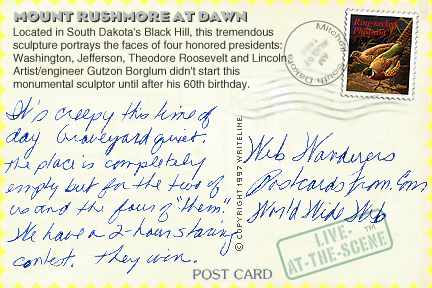 MOUNT RUSHMORE AT DAWN
Located in South Dakota's Black Hill, this tremendous
sculpture portrays the faces of four honored presidents:
Washington, Jefferson, Theodore Roosevelt and Lincoln
Artist/engineer Gutzon Borglum didn't start this
monumental sculptor until after his 60th birthday.
Mitchell, South Dakota
Ring-necked
Pheasant
It's creepy this time of
day Graveyard quiet.
The place is completely
empty but for the two of
us and the four of "them".
We have a 2-hour staring
contest. They win.
© COPYRIGHT 1997 WRITELINE
Web Wanderers
Postcards From.Com
World Wide Web
LIVE-
AT-THE-SCENE
TM
POST CARD